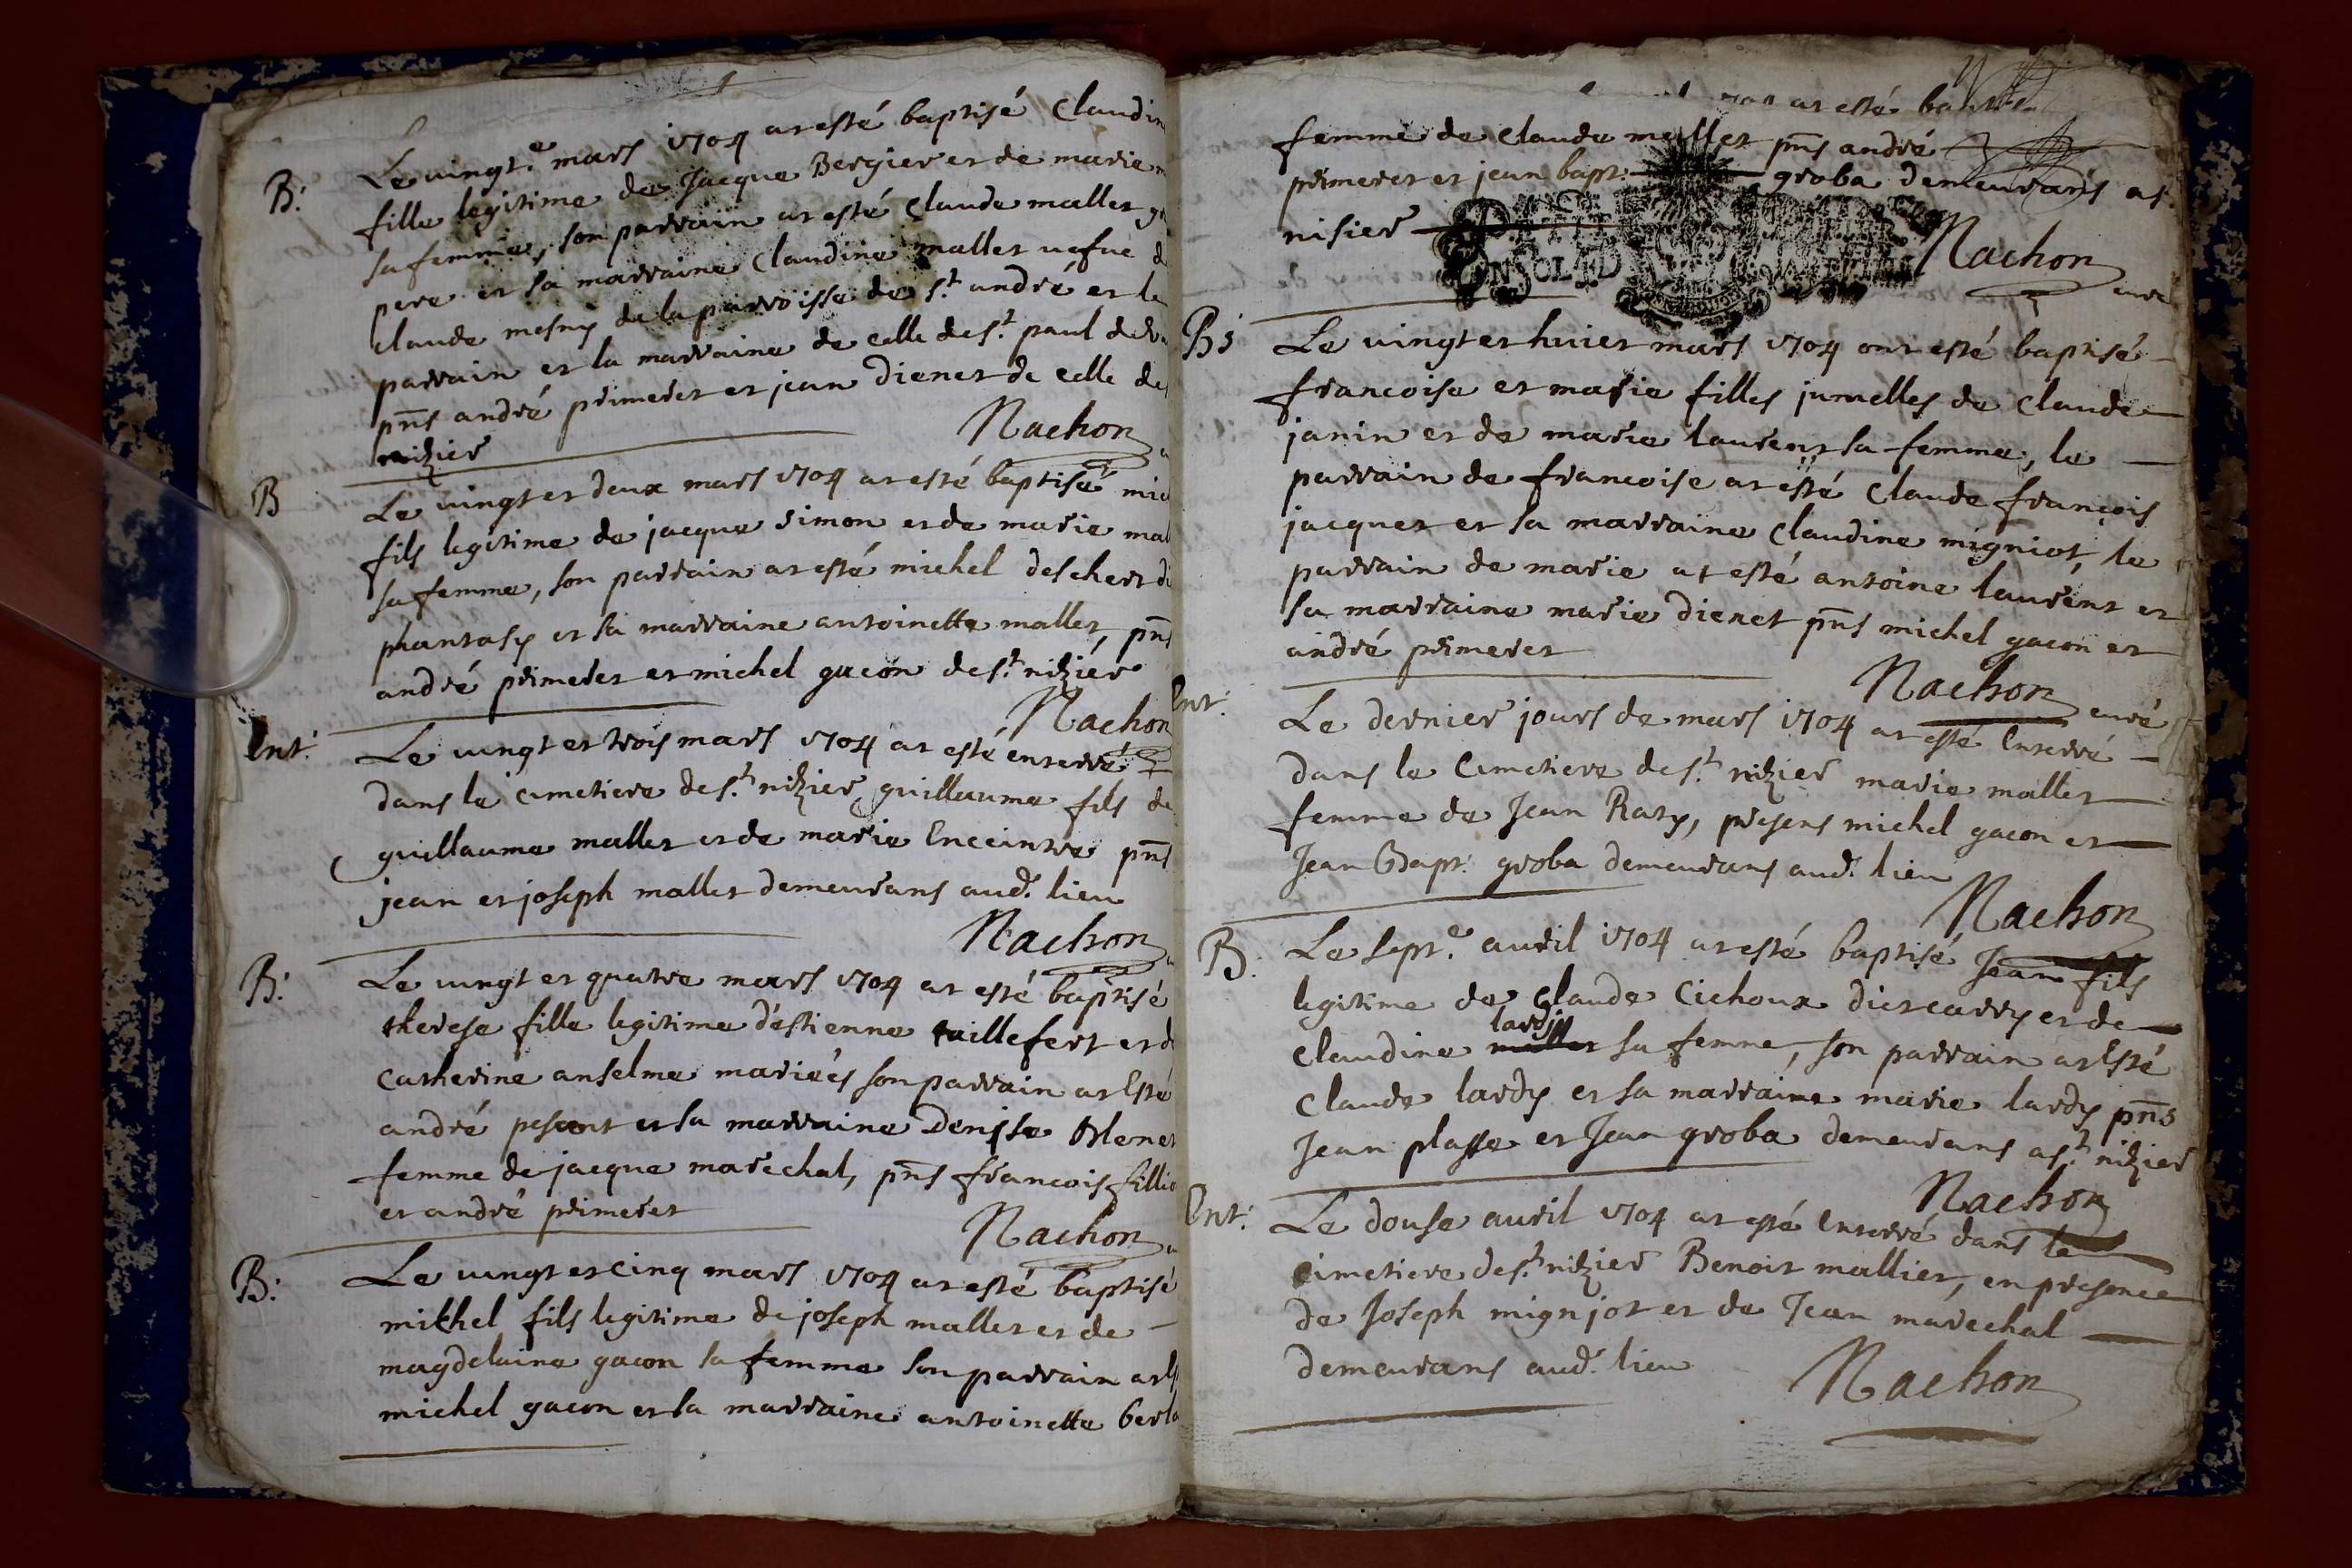 B: Le vingt.e mars 1704 at esté baptisé Claudine
fille legitime de Jacque Bergier et de marie
sa femme, son parrain at esté Claude mallet
pere et sa marraine Claudine mallet vefve
Claude mesny de la parroisse de st. andré et le
parrain et la marraine de celle de st. paul de
pn̄s andré primeret et jean dienet de celle de
nizier
Nachon
B Le vingt et deux mars 1704 at esté baptisé
fils legitime de jacque simon et de marie
sa femme, son parrain at esté michel deschert
phantasy et sa marraine antoinette mallet, pn̄s
andré primeret et michel gacon de st. nizier
Nachon
Ent: Le vingt et trois mars 1704 at esté enterré
dans le cimetiere de st. nizier guillaume fils de
guillaume mallet et de marie Enceintre pn̄s
jean et joseph mallet demeurans aud. lieu
Nachon
B: Le vingt et quatre mars 1704 at esté baptisé
therese fille legitime d'estienne taillefert et de
Catherine anselme mariés son parrain at Esté
andré pesent et sa marraine Denise
femme de jacque marechal, pn̄s francois
et andré primeret
Nachon
B: Le vingt et cinq mars 1704 at esté baptisé
mikhel fils legitime de joseph mallet et de
magdelaine gacon sa femme son parrain at
michel gacon et sa marraine antoinette
at esté
femme de Claude mallet pn̄s andré
primeret et jean bapt: groba demeurans a st.
nisier
Nachon curé
Bs Le vingt et huict mars 1704 ont esté baptisé
francoise et marie filles jumelles de Claude
janin et de marie laurent sa femme, le
parrain de francoise at esté Claude françois
jacquet et sa marraine Claudine migniot, le
parrain de marie at esté antoine laurent et
sa marraine marie dienet pn̄s michel gacon et
andré primeret
Nachon curé
Ent: Le dernier jours de mars 1704 at esté Enterré
dans le Cimetiere de st. nizier marie mallet
femme de Jean Raty, presens michel gacon et
Jean Bapt: groba demeurans aud. lieu
Nachon
B: Le sept.e avril 1704 at esté baptisé Jean fils
legitime de Claude Cichoux dict carry et de
lardy
Claudine mallet sa femme, son parrain at Esté
Claude lardy et sa marraine marie lardy pn̄s
Jean plasse et Jean groba demeurans a st. nizier
Nachon
Ent: Le douse avril 1704 at esté Enterré dans le
cimetiere de st. nizier Benoit mallier, en presence
de Joseph mignjot et de Jean marechal
demeurans aud. lieu
Nachon